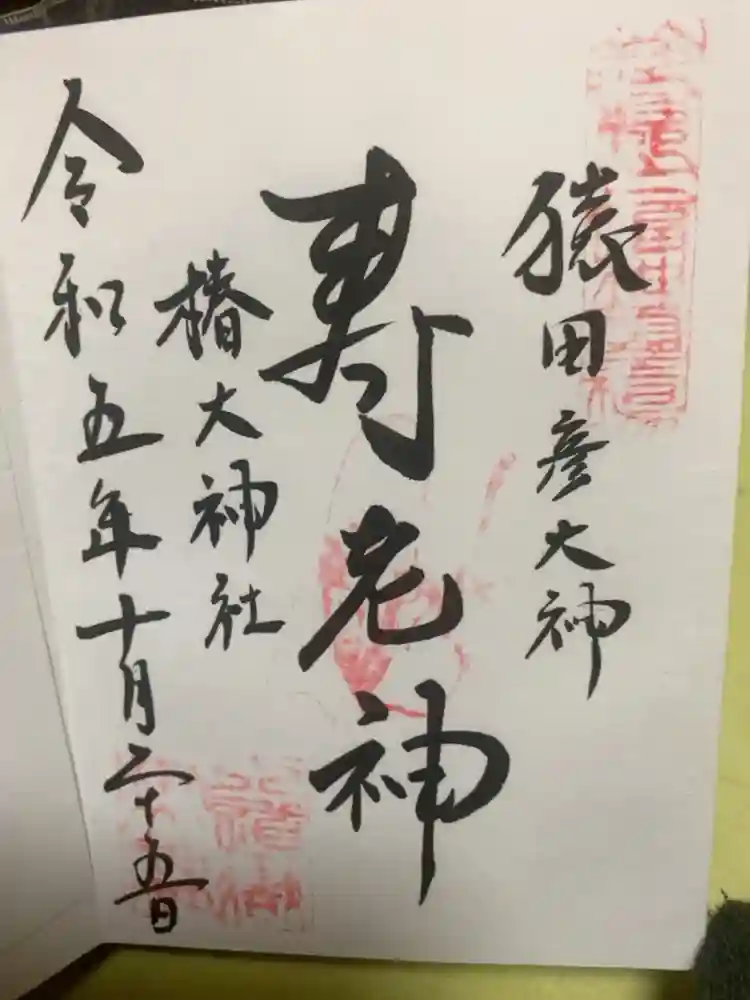 猿田彦大神
寿老神
椿大神社
令和五年十月二十五日